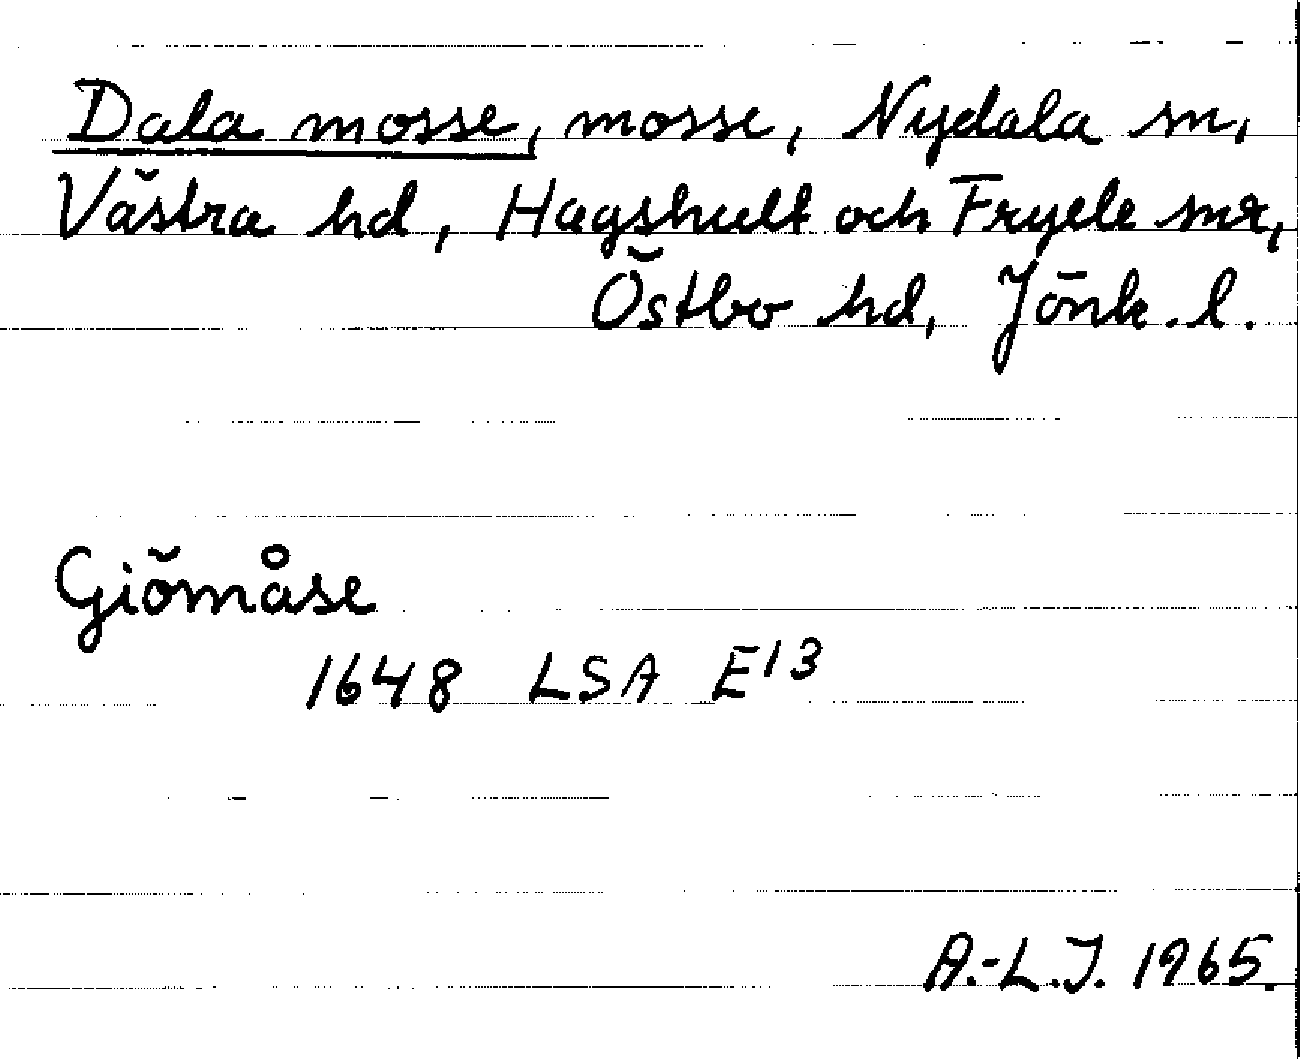 Dala mosse, mosse, Nydala sn,
Västra hd, Hagshult och Fryele snr,
Östbo hd, Jönk. l.
Giömåse
1648 LSA E13
A.-L.J. 1965.